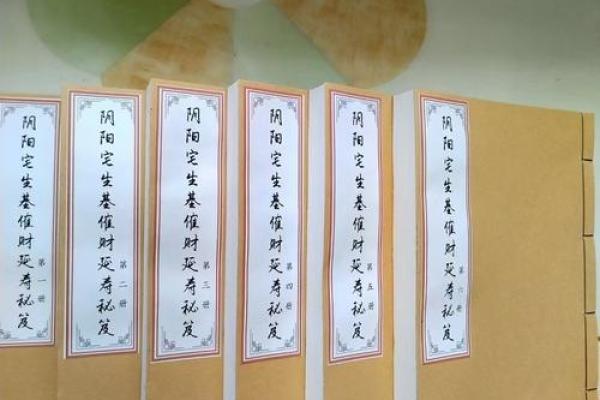 阴阳宅生基催财延寿秘笈
第一册
阴阳宅生基催财延寿秘笈
第二册
阴阳宅生基催财延寿秘笈
第三册
阴阳宅生基催财延寿秘笈
第四册
阴阳宅生基催财延寿秘笈
第五册
阴阳宅生基催财延寿秘笈
第六册